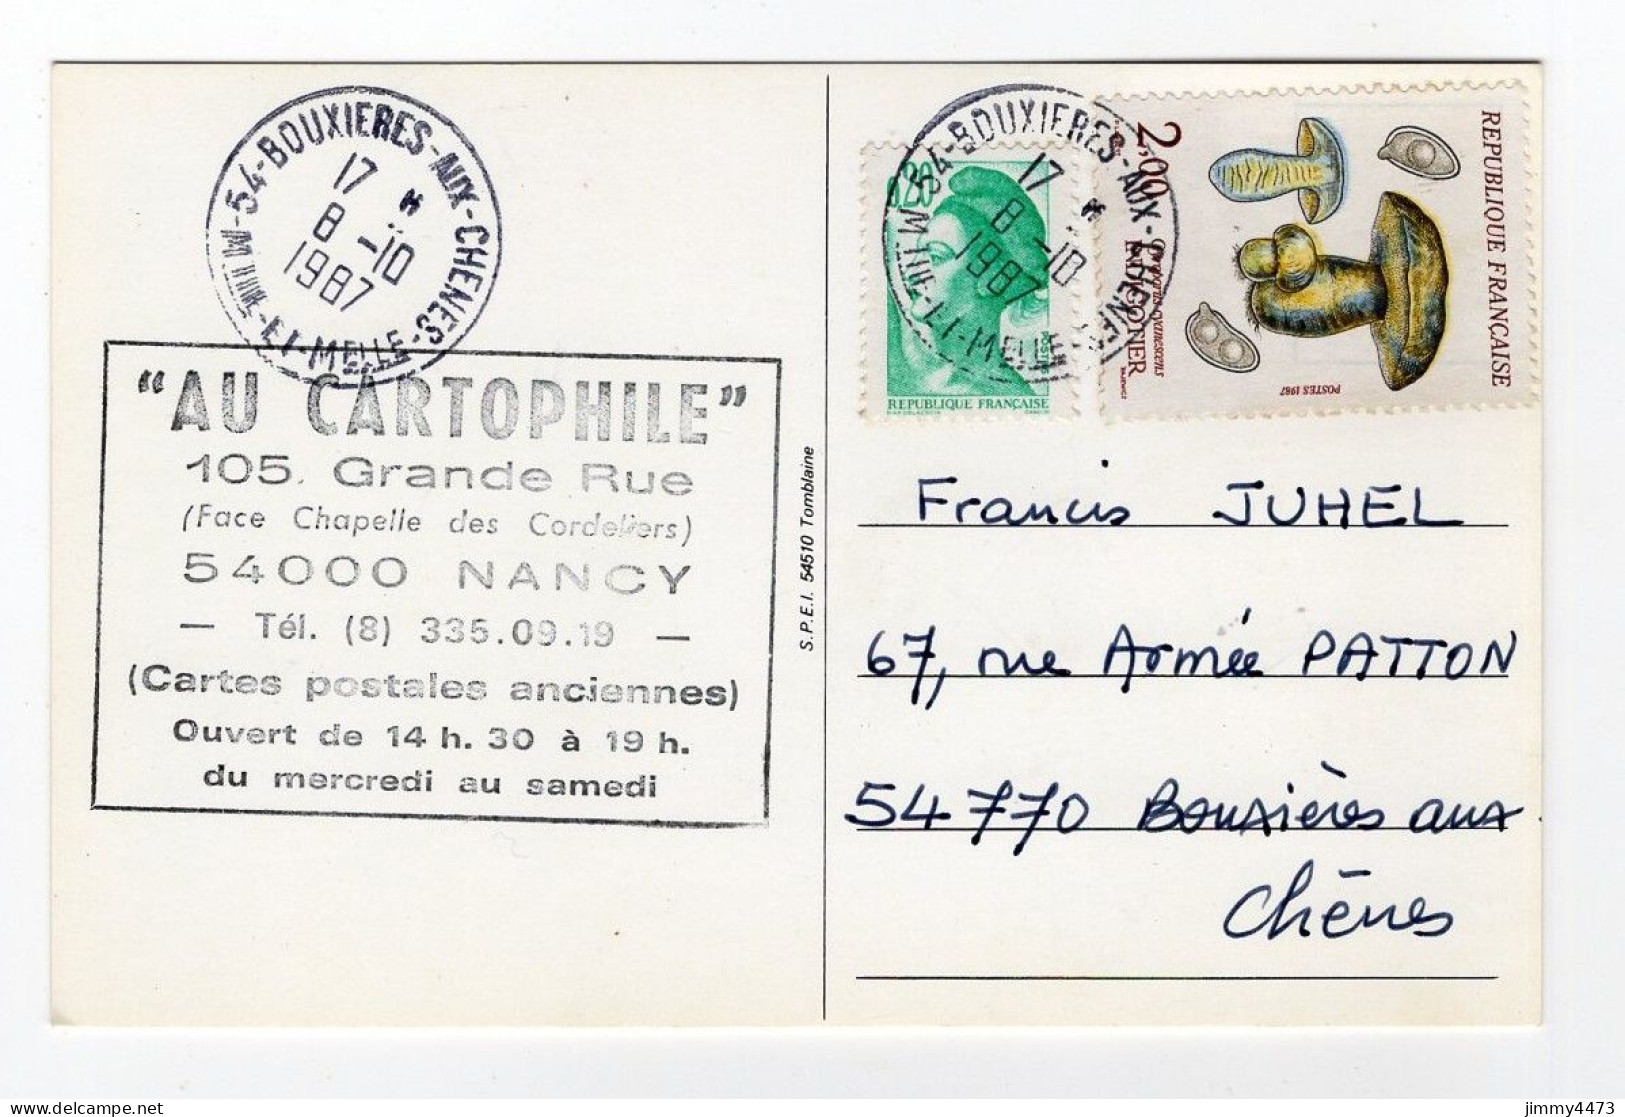 54-BOUXIERES-AUX-CHENES
17 H
8-10
1987
MEURTHE-ET-MELLE
"AU CARTOPHILE"
105, Grande Rue
(Face Chapelle des Cordeliers)
54000 NANCY
— Tél. (8) 335.09.19 —
(Cartes postales anciennes)
Ouvert de 14 h. 30 à 19 h.
du mercredi au samedi
S.P.E.I. 54510 Tomblaine
0,20
POSTES
REPUBLIQUE FRANÇAISE
54-BOUXIERES-AUX-CHENES
17 H
8-10
1987
ET-MELLE
2,00
REPUBLIQUE FRANÇAISE
Gyroporus cyanescens
INDIGOTIER
POSTES 1987
Francis JUHEL
67, rue Armée PATTON
54770 Bouxières aux
Chênes
jimmy4473
delcampe.net